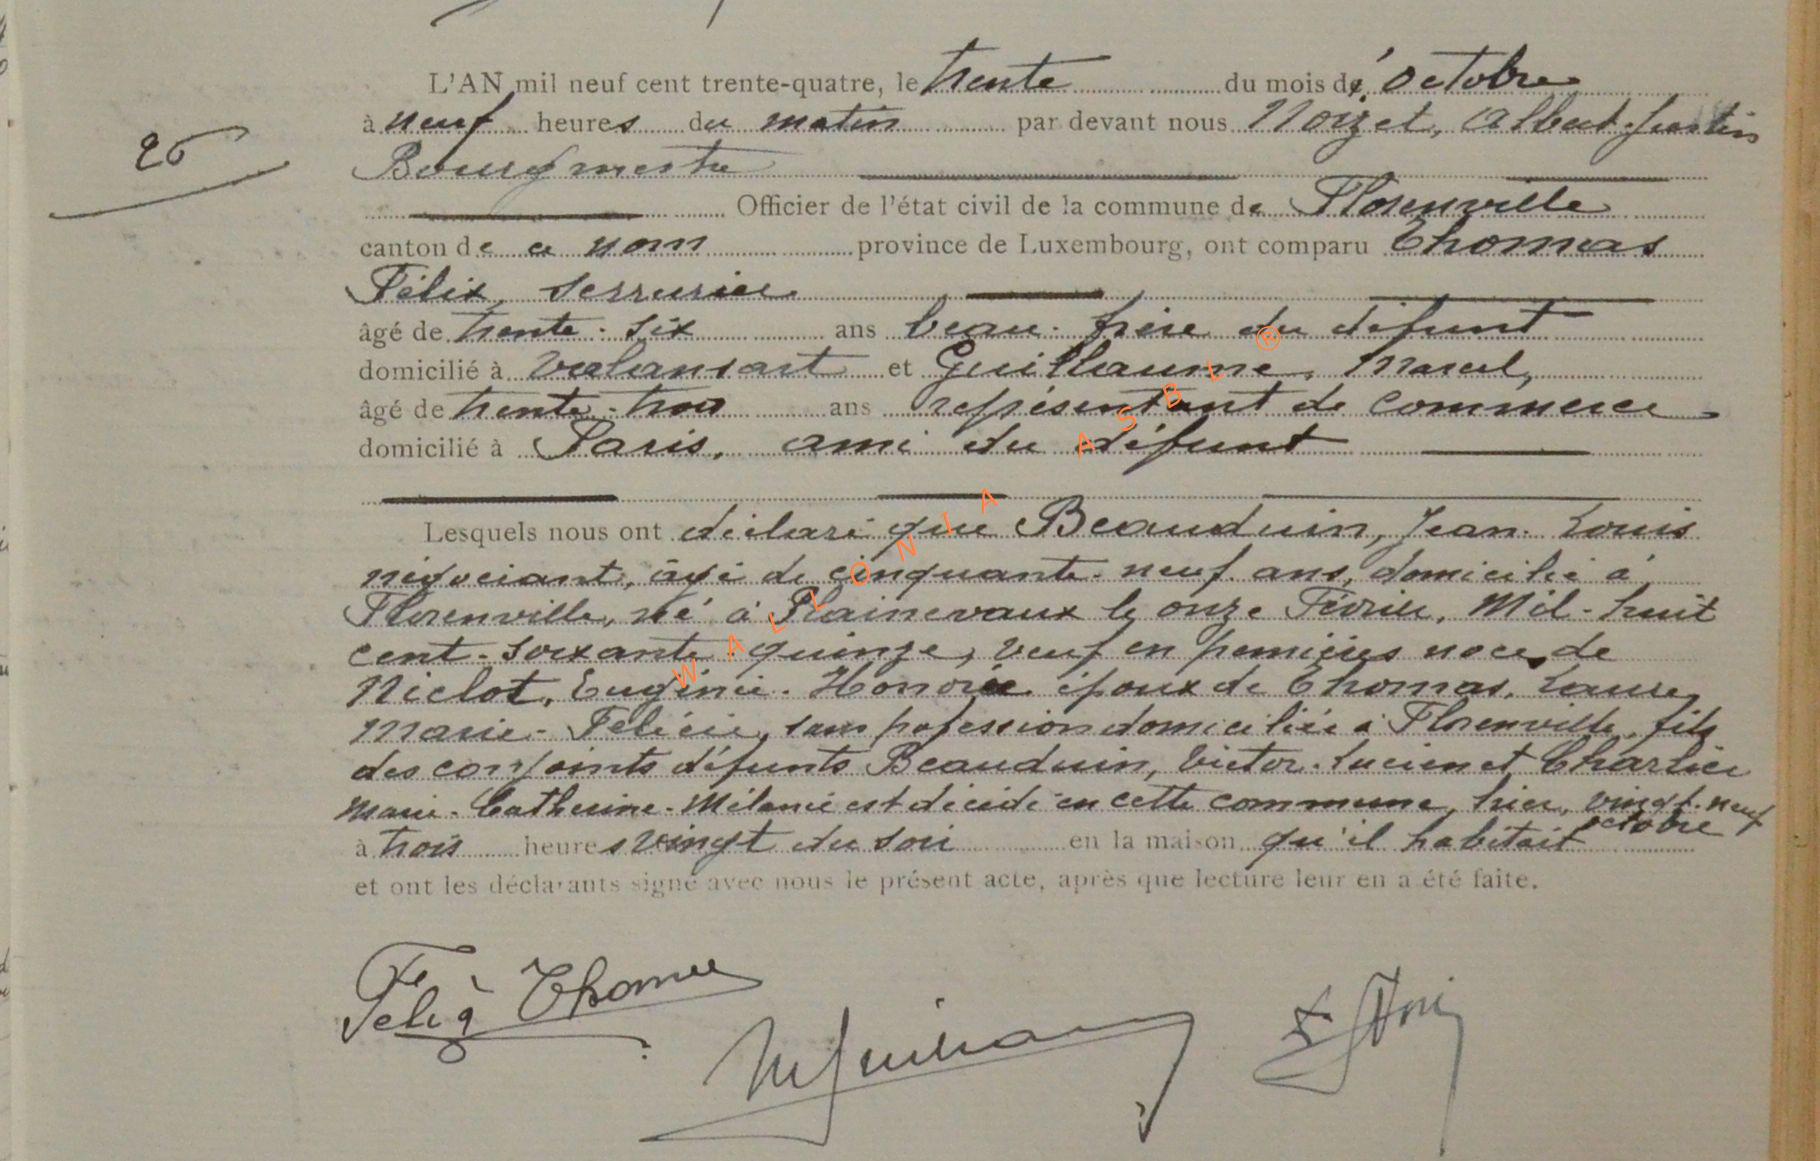 L'AN mil neuf cent trente-quatre, le trente du mois d'octobre
à neuf heures du matin par devant nous Noizet, Albert-Justin
26
Bourgmestre
Officier de l'état civil de la commune de Florenville
canton de ce nom province de Luxembourg, ont comparu Thomas
Félix, serrurier
âgé de trente-six ans beau-frère du défunt
domicilié à Valansart et Guillaume, Marcel,
âgé de trente-trois ans représentant de commerce
domicilié à Paris, ami du défunt
Lesquels nous ont déclaré que Beauduin, Jean-Louis
négociant, âgé de cinquante-neuf ans, domicilié à
Florenville, né à Plainevaux le onze Février, Mil-huit
cent-soixante quinze, veuf en premières noces de
Niclot, Eugénie-Honorée époux de Thomas, Laure,
Marie-Félicie, sans profession domiciliée à Florenville, fils
des conjoints défunts Beauduin, Victor-Lucien et Charlier
Marie-Catherine-Mélanie est décédé en cette commune, hier, vingt-neuf
octobre
à trois heures vingt du soir en la maison qu'il habitait
et ont les déclarants signé avec nous le présent acte, après que lecture leur en a été faite.
Félix Thomas
MGuillaume
WALLONIA ASBL ®